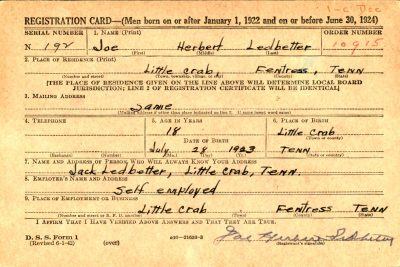 1-C Dec
REGISTRATION CARD—(Men born on or after January 1, 1922 and on or before June 30, 1924)
SERIAL NUMBER 1. NAME (Print) ORDER NUMBER
N 192 Joe Herbert Ledbetter 10915
(First) (Middle) (Last)
2. PLACE OF RESIDENCE (Print)
Little Crab, Fentress, Tenn
(Number and street) (Town, township, village, or city) (County) (State)
[THE PLACE OF RESIDENCE GIVEN ON THE LINE ABOVE WILL DETERMINE LOCAL BOARD
JURISDICTION; LINE 2 OF REGISTRATION CERTIFICATE WILL BE IDENTICAL]
3. MAILING ADDRESS
Same
(Mailing address if other than place indicated on line 2. If same insert word same)
4. TELEPHONE 5. AGE IN YEARS 6. PLACE OF BIRTH
18 Little Crab
DATE OF BIRTH (Town or county)
July 28 1923 Tenn
(Exchange) (Number) (Mo.) (Day) (Yr.) (State or country)
7. NAME AND ADDRESS OF PERSON WHO WILL ALWAYS KNOW YOUR ADDRESS
Jack Ledbetter, Little Crab, Tenn.
8. EMPLOYER'S NAME AND ADDRESS
Self employed
9. PLACE OF EMPLOYMENT OR BUSINESS
Little Crab Fentress Tenn
(Number and street or R. F. D. number) (Town) (County) (State)
I AFFIRM THAT I HAVE VERIFIED ABOVE ANSWERS AND THAT THEY ARE TRUE.
D. S. S. Form 1
(Revised 6-1-42) (over) Joe Herbert Ledbetter
(Registrant's signature)